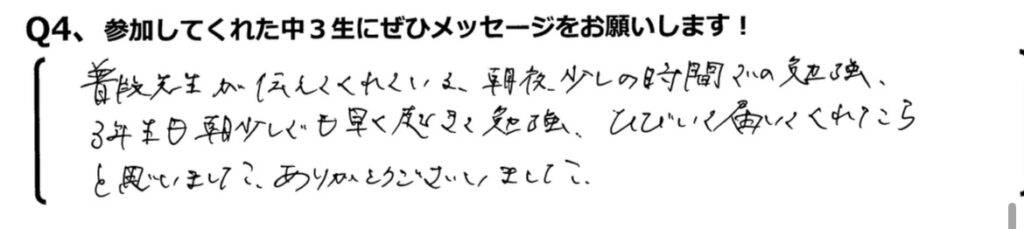 Q4、参加してくれた中３生にぜひメッセージをお願いします！
普段先生が伝えてくれている、朝夜少しの時間での勉強、
3年生日朝少しでも早く起きて勉強、ひびいて届いてくれたら
と思いました。ありがとうございました。